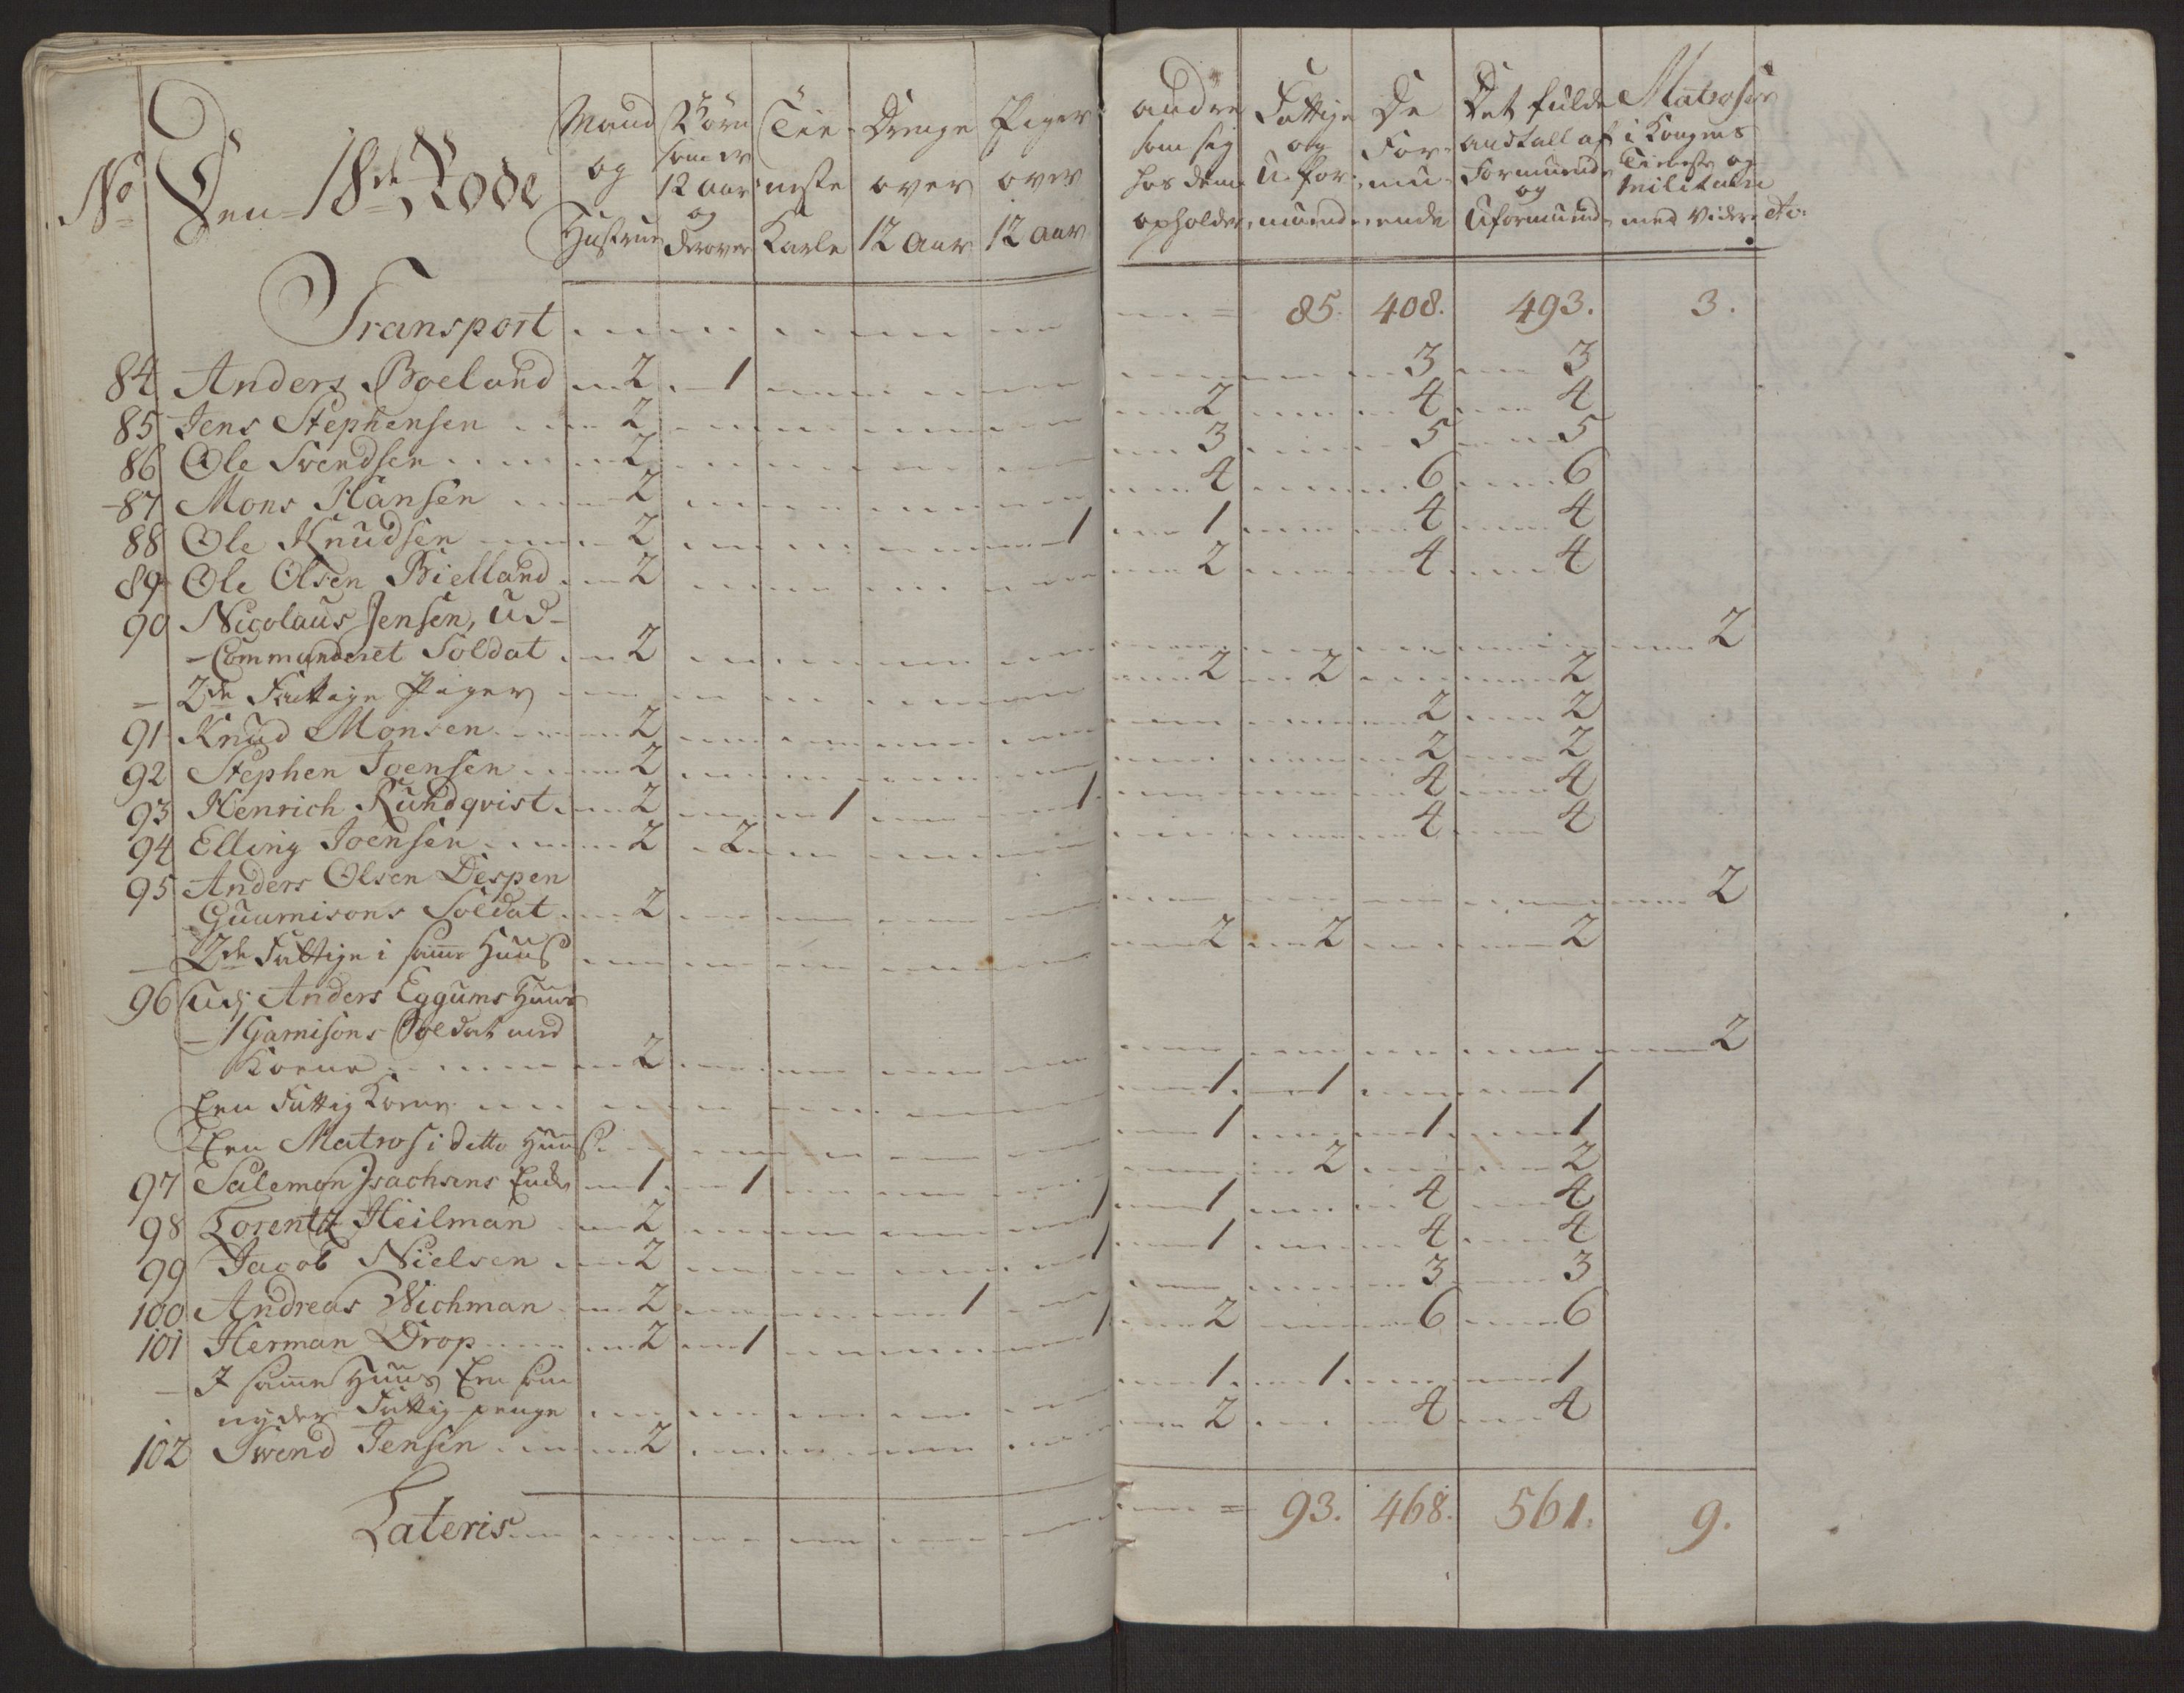 No Den 18de Rode
Mand og Hustrue
Börn som er 12 Aar og derover
Tie-neste Karle
Drenge over 12 Aar
Piger over 12 Aar
andre som sig hos dem opholder
Fattige og U-for-muend
De For-mu-ende
Det fulde andtall af Formuend og Uformuend
Matroser i Kongens Tieneste og Militaire med Vider
Transport 85. 408. 493. 3.
84 Anders Boeland 2 1 3 3
85 Jens Stephensen 2 2 4 4
86 Ole Svendsen 2 3 5 5
87 Mons Hansen 2 4 6 6
88 Ole Knudsen 2 1 1 4 4
89 Ole Olsen Bielland 2 2 4 4
90 Nicolaus Jensen, Ud-
Commanderet Soldat 2 2
- 2de Fattige Piger 2 2 2
91 Knud Monsen 2 2 2
92 Stephen Joensen 2 2 2
93 Henrich Rundqvist 2 1 1 4 4
94 Elling Joensen 2 2 4 4
95 Anders Olsen Despen
Guarnisons Soldat 2 2
- 2de Fattige i samme Huus 2 2 2
96 Udj Anders Eggums Huus
- 1 Garnisons Soldat med
Kone 2 2
Een Fattig Kone 1 1 1
Een Matros i ditto Huus 1 1 1
97 Salemon Jsachsens Enke 1 1 2 2
98 Lorentz Heilman 2 1 1 4 4
99 Jacob Nielsen 2 1 1 4 4
100 Andreas Wichman 2 1 3 3
101 Herman Drop 2 1 1 2 6 6
- I samme Huus Een som
nyder Fattig penge 1 1 1
102 Swend Jensen 2 2 4 4
Lateris 93. 468. 561. 9.